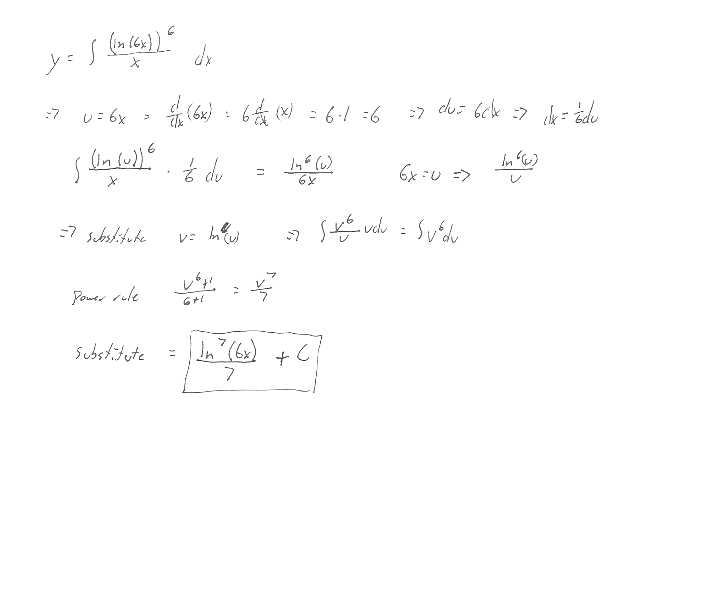 y = ∫ (ln(6x))^6 / x dx
=> u = 6x = d/dx (6x) = 6 d/dx (x) = 6·1 = 6 => du = 6dx => dx = 1/6 du
∫ (ln(u))^6 / x · 1/6 du = ln^6(u) / 6x 6x = u => ln^6(u) / u
=> substitute v = ln(u) => ∫ v^6/u u dv = ∫ v^6 dv
power rule v^6+1 / 6+1 = v^7 / 7
substitute = ln^7(6x) / 7 + C